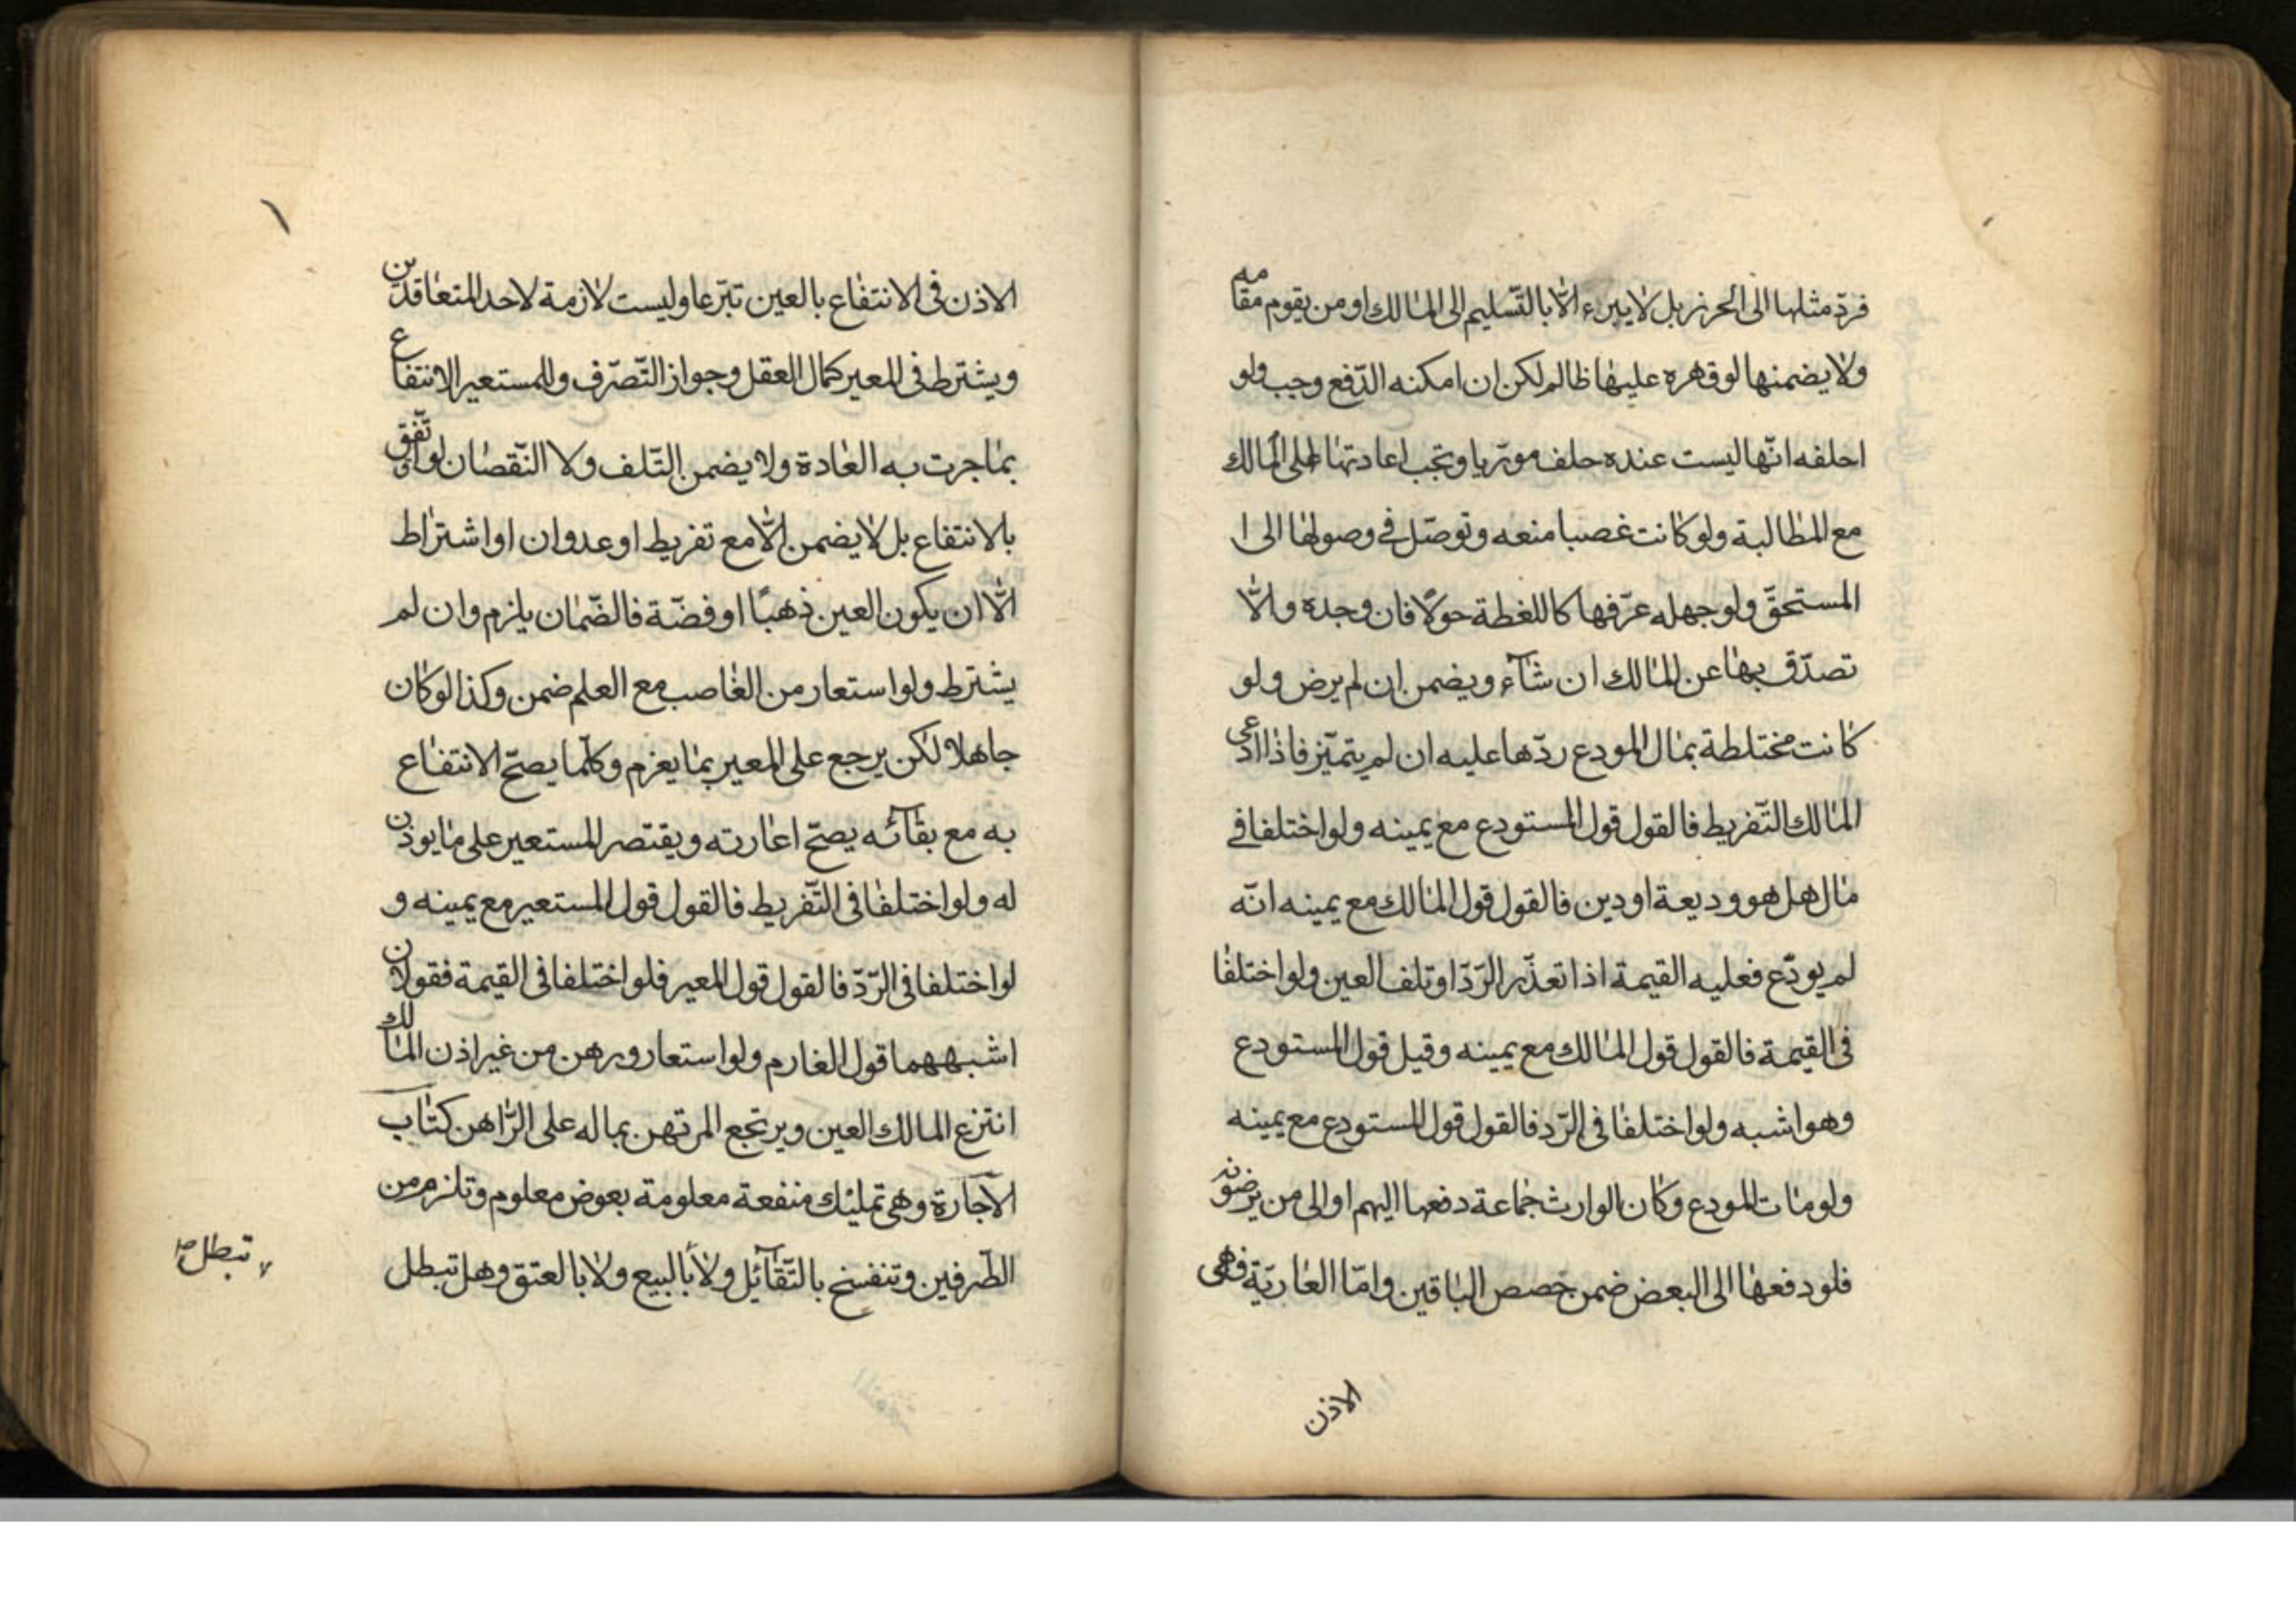 فردّ مثلها الى الحرز بل لا يبرء الّا بالتّسليم الى المالك او من يقوم مقامه
ولا يضمنها لو قهره عليها ظالم لكن ان امكنه الدّفع وجب ولو
احلفه انّها ليست عنده حلف مورّيا ويجب اعادتها على المالك
مع المطالبة ولو كانت غصبا منعه وتوصّل في وصولها الى ا
المستحقّ ولو جهله عرّفها كاللغطة حولًا فان وجده والّا
تصدّق بها عن المالك ان شآء ويضمن ان لم يرض ولو
كانت مختلطة بمال المودع ردّها عليه ان لم يتميّز فاذا ادعى
المالك التّفريط فالقول قول المستودع مع يمينه ولو اختلفا في
مال هل هو وديعة او دين فالقول قول المالك مع يمينه انّه
لم يودّع فعليه القيمة اذا تعذّر الرّدّ او تلف العين ولو اختلفا
فى القيمة فالقول قول المالك مع يمينه وقيل قول المستودع
وهو اشبه ولو اختلفا فى الرّد فالقول قول المستودع مع يمينه
ولو مات المودع وكان الوارث جماعة دفعها اليهم او الى من يرضونه
فلو دفعها الى البعض ضمن حصص الباقين وامّا العاريّة فهى
الاذن
الاذن فى الانتفاع بالعين تبرّعا وليست لازمة لاحد المتعاقدين
ويشترط فى المعير كمال العقل وجواز التّصرّف وللمستعير الانتفاع
بما جرت به العادة ولا يضمن التّلف ولا النّقصان لو اتّفق
بالانتفاع بل لا يضمن الّا مع تفريط او عدوان او اشتراط
الّا ان يكون العين ذهبًا او فضّة فالضّمان يلزم وان لم
يشترط ولو استعار من الغاصب مع العلم ضمن وكذا لو كان
جاهلا لكن يرجع على المعير بما يغرم وكلّما يصحّ الانتفاع
به مع بقآئه يصحّ اعارته ويقتصر المستعير على ما يوذن
له ولو اختلفا فى التّفريط فالقول قول المستعير مع يمينه و
لو اختلفا فى الرّدّ فالقول قول المعير فلو اختلفا فى القيمة فقولان
اشبههما قول الغارم ولو استعار ورهن من غير اذن المالك
انتزع المالك العين ويرتجع المرتهن بماله على الرّاهن كتاب
الآجارة وهى تمليك منفعة معلومة بعوض معلوم وتلزم من
الطّرفين وتنفسخ بالتّقآئل ولا بالبيع ولا بالعتق وهل تبطل
لا تبطل